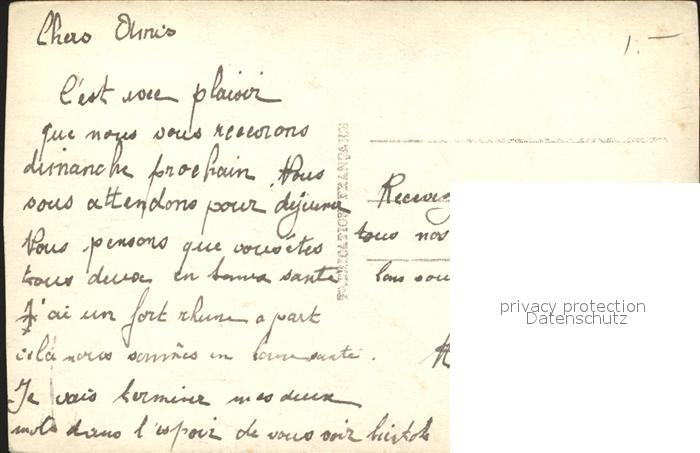 Chers Amis
1.-
C'est avec plaisir
que nous vous recevrons
dimanche prochain Nous
vous attendons pour déjeuner
Nous pensons que vous êtes
tous deux en bonne santé
J'ai un fort rhume a part
cela nous sommes en bonne santé.
Je vais terminer mes deux
mots dans l'espoir de vous voir bientôt
FABRICATION FRANÇAISE
Recevez
tous nos
bons sou
privacy protection
Datenschutz